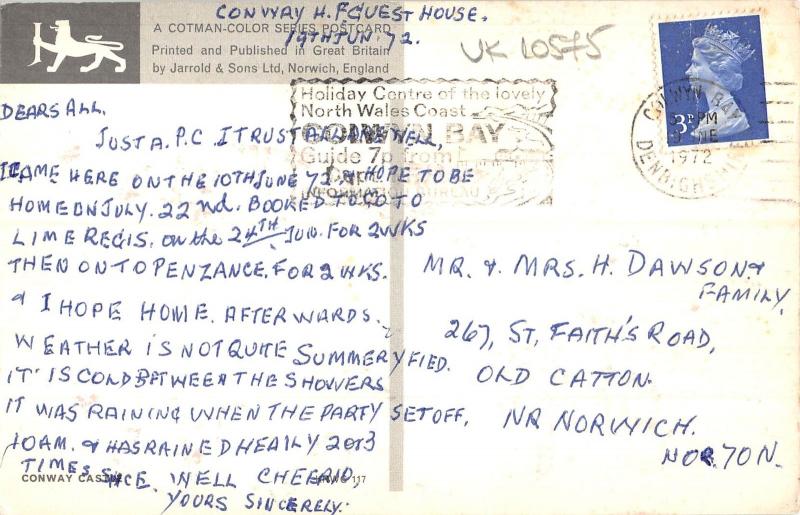 CONWAY H. F GUEST HOUSE.
19TH JUN. 72.
UK L0575
A COTMAN-COLOR SERIES POSTCARD
Printed and Published in Great Britain
by Jarrold & Sons Ltd, Norwich, England
Holiday Centre of the lovely
North Wales Coast
COLWYN BAY
Guide 7p from
INFORMATION BUREAU
COLWYN BAY
PM
NE
1972
DENBIGHSHIRE
3P
DEARS ALL.
JUST A. P.C I TRUST ALL ARE WELL,
I CAME HERE ON THE 10TH JUNE 72 & HOPE TO BE
HOME ON JULY. 22nd. BOOKED TO GO TO
LIME REGIS. on the 24TH JUN. FOR 2 WKS
THEN ON TO PENZANCE. FOR 2 WKS.
& I HOPE HOME. AFTERWARDS.
WEATHER IS NOT QUITE SUMMERYFIED.
IT IS COLD BETWEEN THE SHOWERS
IT WAS RAINING WHEN THE PARTY SET OFF,
10AM. & HAS RAINED HEAILY 2 OR 3
TIMES SINCE. WELL CHEERIO,
YOURS SINCERELY.
CONWAY CASTLE
117
MR. & MRS. H. DAWSON &
FAMILY,
267, ST, FAITH'S ROAD,
OLD CATTON.
NR NORWICH.
NOR. 70N.